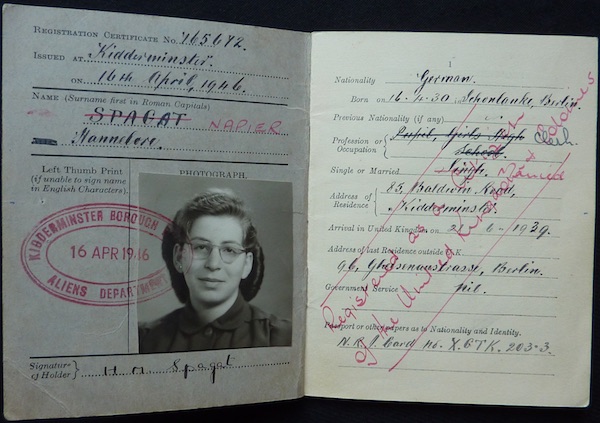 REGISTRATION CERTIFICATE No. 165672.
ISSUED AT Kidderminster.
ON 16th April, 1946.
NAME (Surname first in Roman Capitals)
SPAGAT NAPIER
Hannelore.
Left Thumb Print
(if unable to sign name
in English Characters).
PHOTOGRAPH.
KIDDERMINSTER BOROUGH
16 APR 1946
ALIENS DEPARTMENT
Signature
of Holder
Spagat
1
Nationality German.
Born on 16.4.30 in Schonlanke, Berlin.
Previous Nationality (if any)
Profession or
Occupation
Pupil, Girls High
School.
Clerk
Single or Married Single. Married
Address of
Residence
85, Baldwin Road,
Kidderminster.
Arrival in United Kingdom on 1939.
Address of last Residence outside U.K.
Berlin.
Government Service nil.
Passport or other papers as to Nationality and Identity.
N.R. Card no.
Registered as a Citizen
of the United Kingdom and Colonies